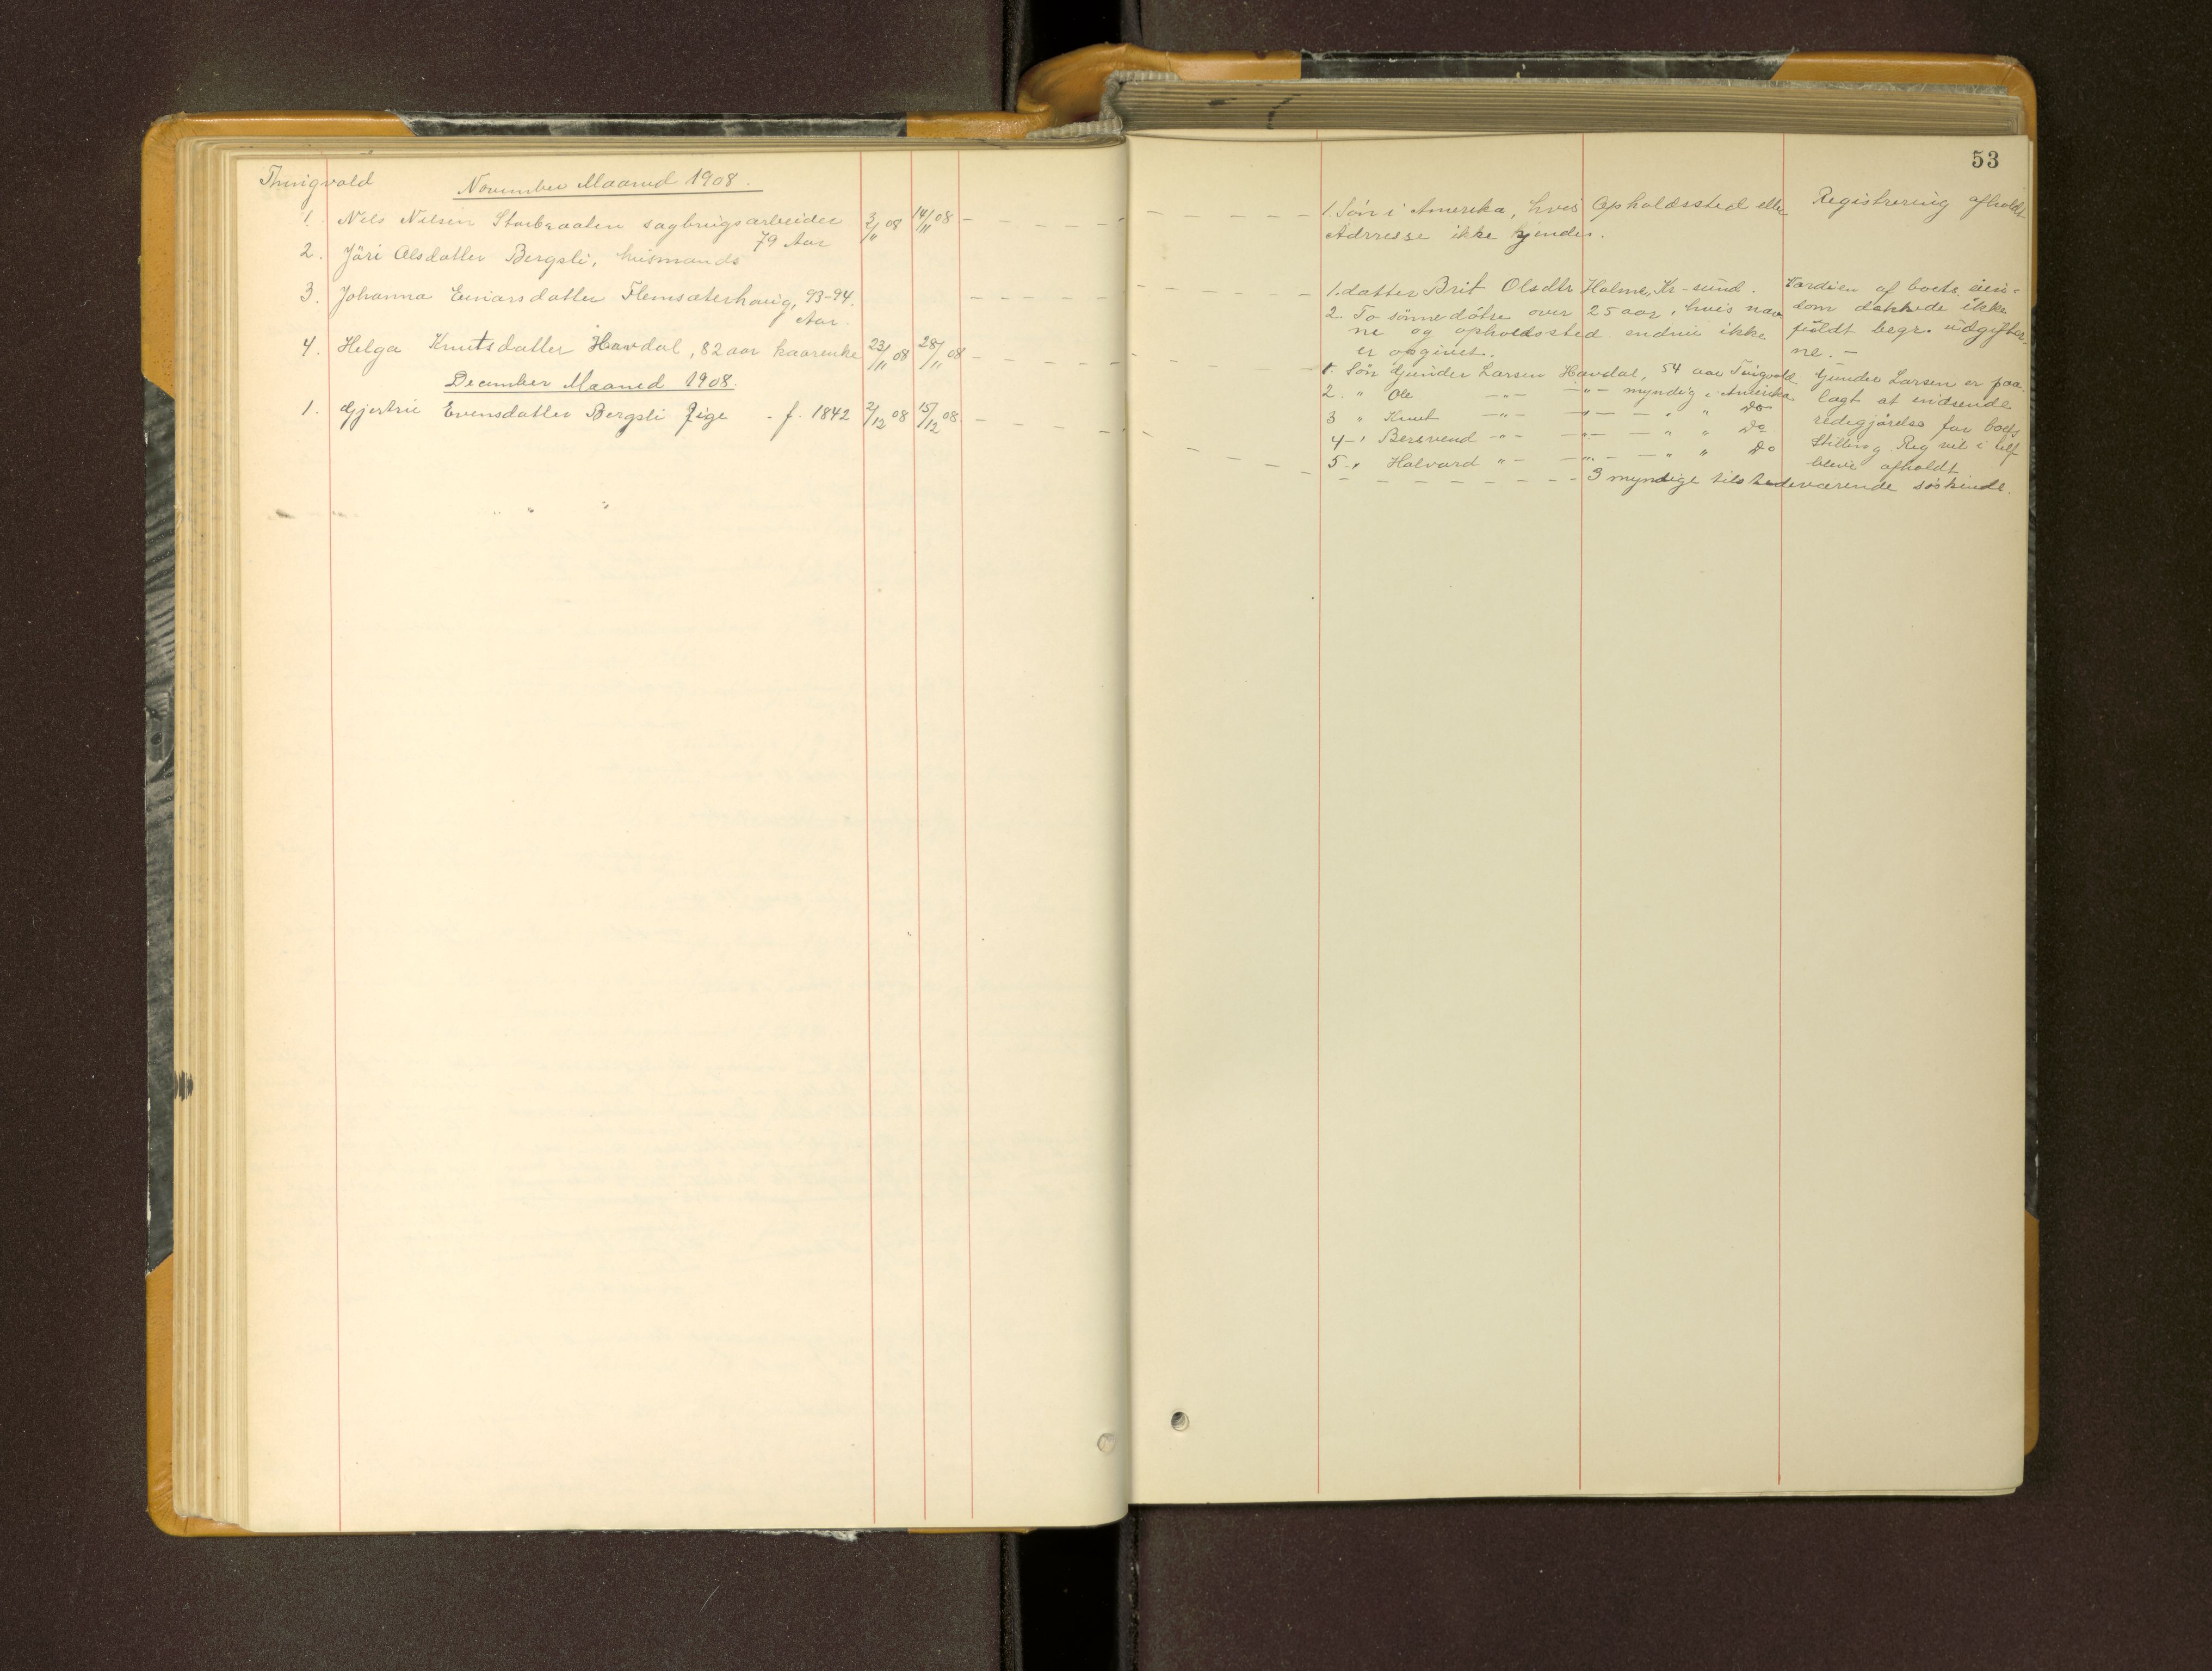 53
Thingvold
November Maaned 1908.
1. Nels Nilsen sagbrugsarbeider 3/11 08 14/11 08
79 Aar
2. Jøri Olsdatter Bergsli, husmands
3. Johanna Einarsdatter Flemsæterhaug, 93-94.
Aar.
4. Helga Knutsdatter Havdal, 82 aar kaarenke 23/11 08 28/11 08
December Maaned 1908.
1. Gjertrü Evensdatter Bergsli Pige - f. 1842 2/12 08 15/12 08
1. Søn i Amerika, hvis Opholdssted eller
Adresse ikke kjendes.
1. datter Brit Olsdtr Holme, Kr-sund.
2. To sønnedøtre over 25 aar, hvis nav
ne og opholdssted endnu ikke
er opgivet.
1. Søn Gunder Larsen Havdal, 54 aar Tingvold
2. " Ole -"- -"- myndig i Amerika
3 " Knut -"- -"- - " " Do
4 - " Beresvend -"- -"- - " " Do
5 - " Halvard "- -"- - " " Do
3 myndige tilstedeværende søskende.
Registrering afholdt
Værdien af boets eien-
dom dækkede ikke
fuldt begr. udgifter-
ne. -
Gunder Larsen er paa-
lagt at indsende
redegjørelse for boets
Stilling. Reg vil i tilf
blive afholdt